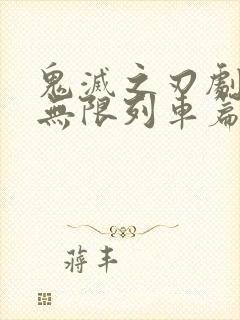 鬼滅之刃劇
無限列車篇
蔣丰